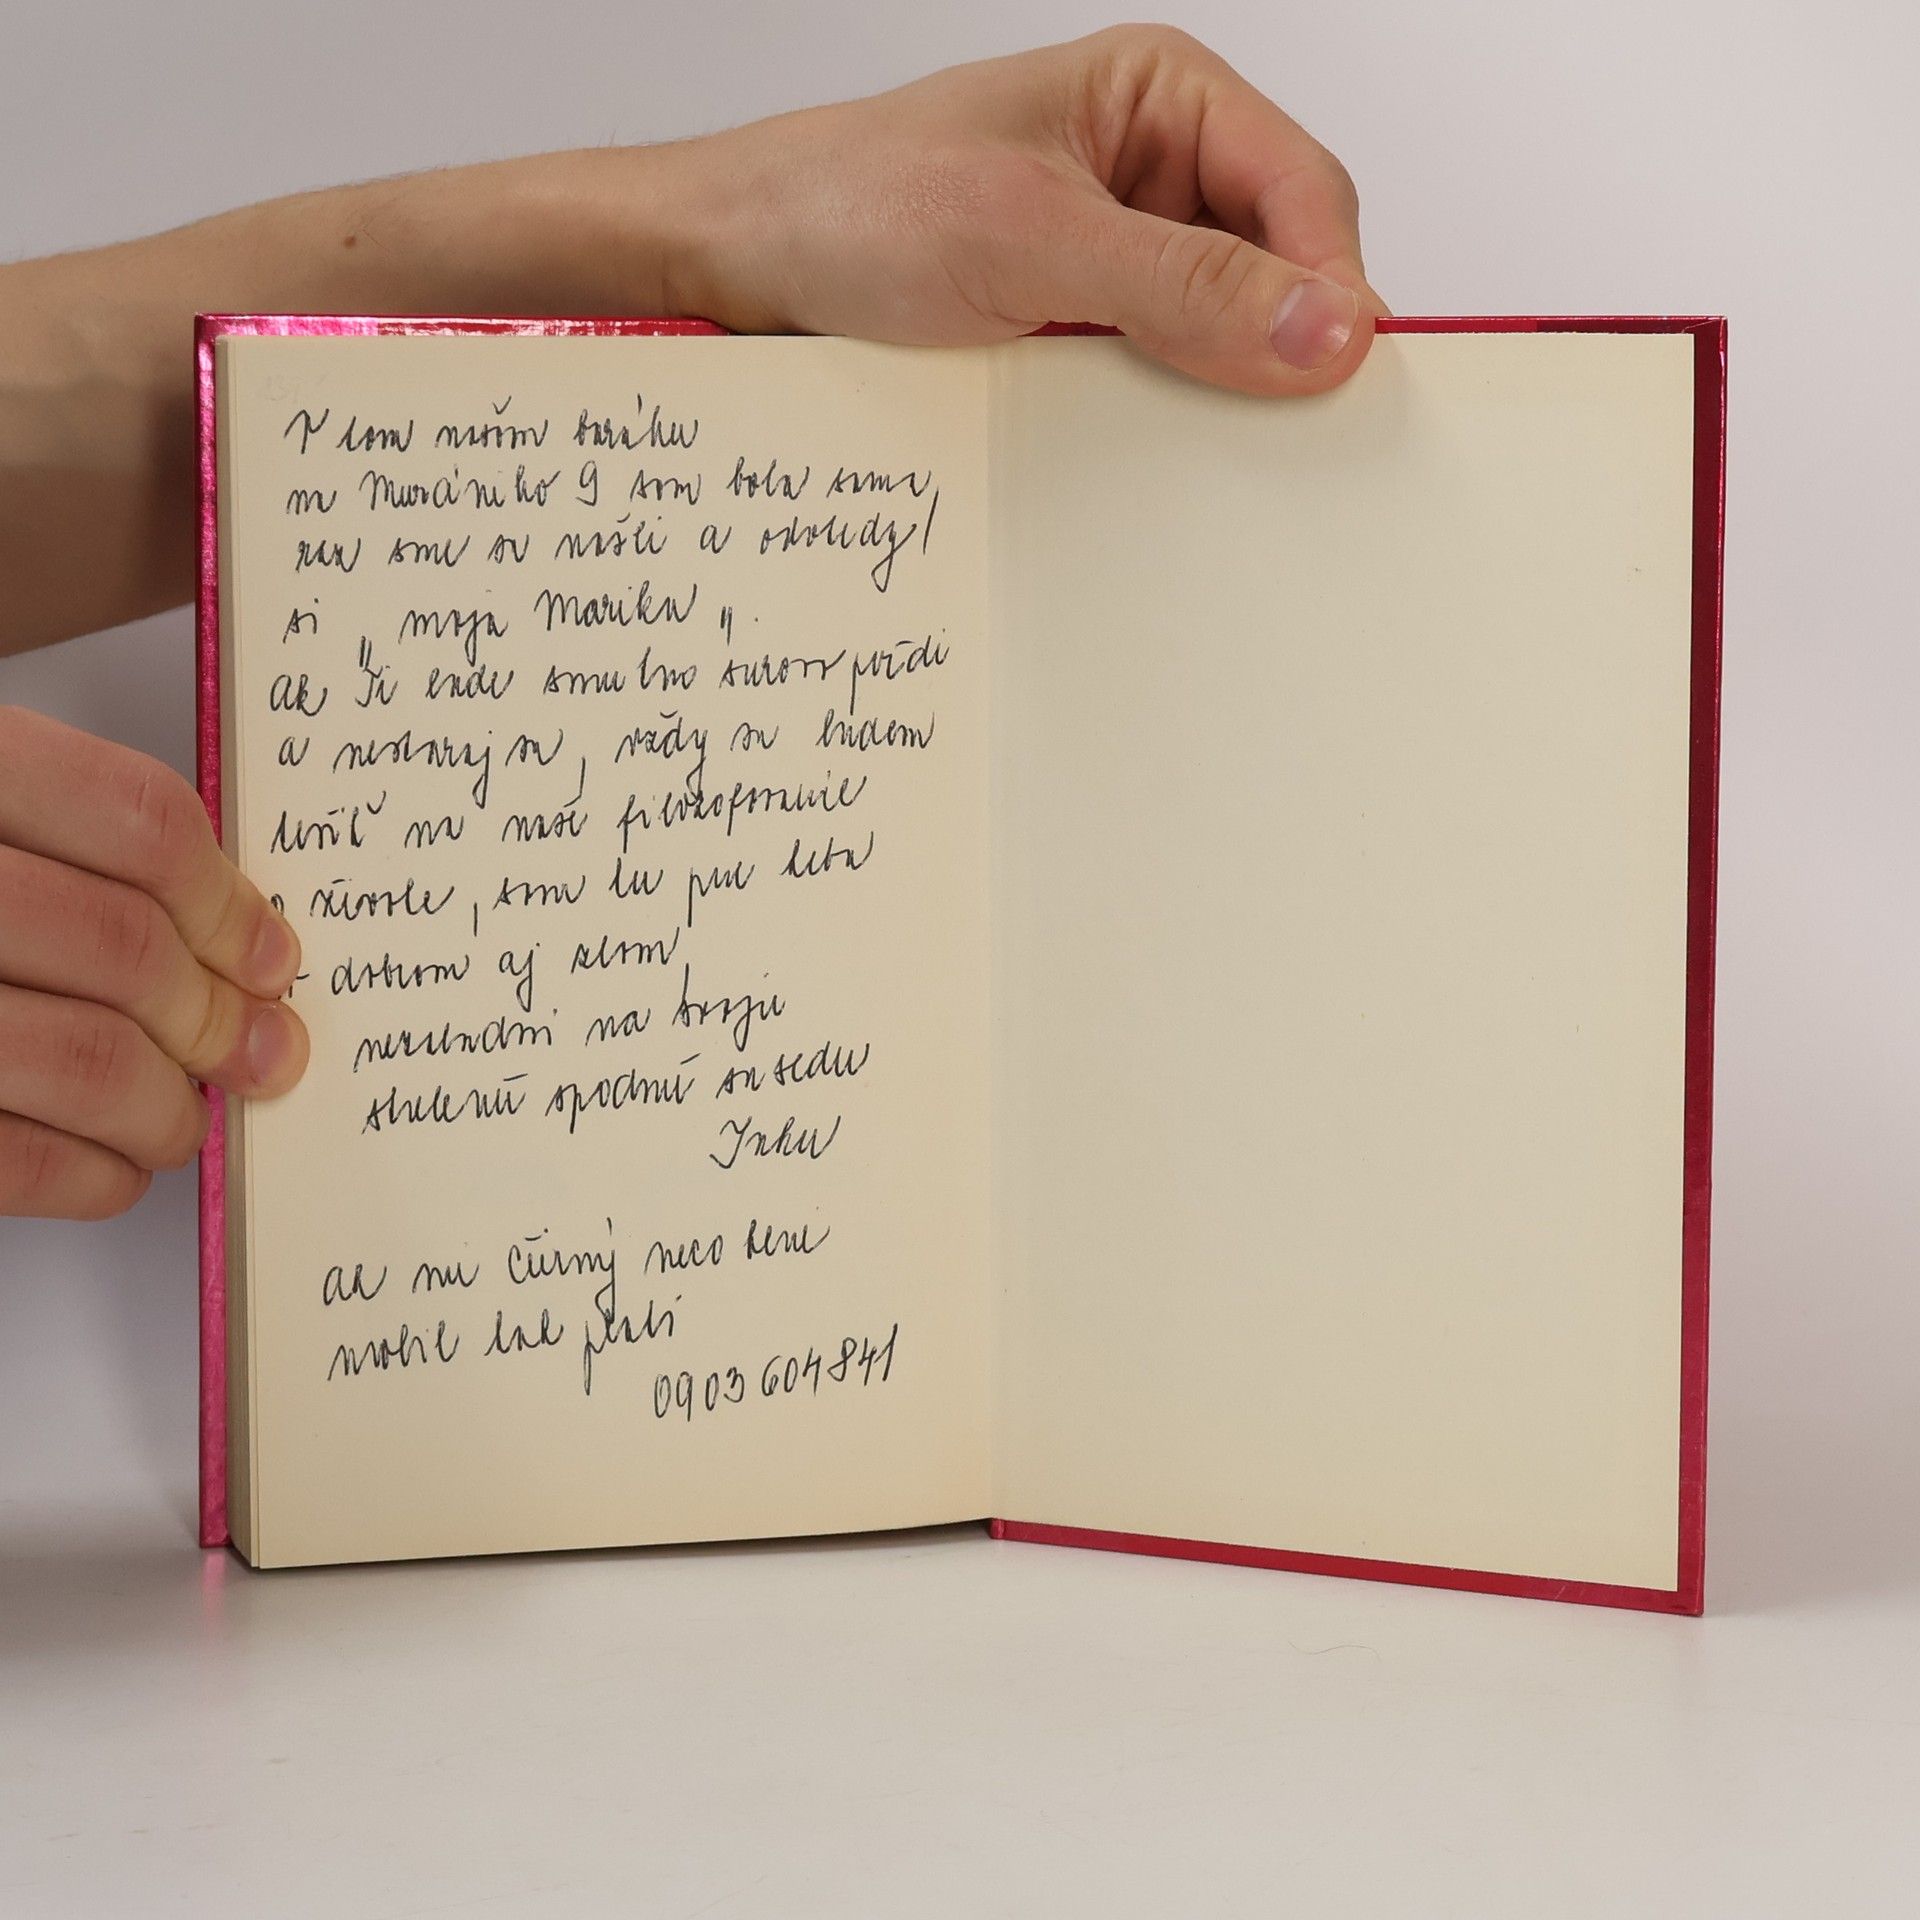 V tom našom baráku
na Muránskho 9 som bola sama,
raz sme sa našli a odvtedy
si „moja Marika".
Ak Ti bude smutno skoro príď
a nestaraj sa, vždy sa budem
tešiť na naše filozofovanie
o živote, som tu pre Teba
v dobrom aj zlom,
nezabudni na svoju
strelenú spodnú susedu
Inku
Ak mi čierny neco bere
mobil tak platí
0903 604 841